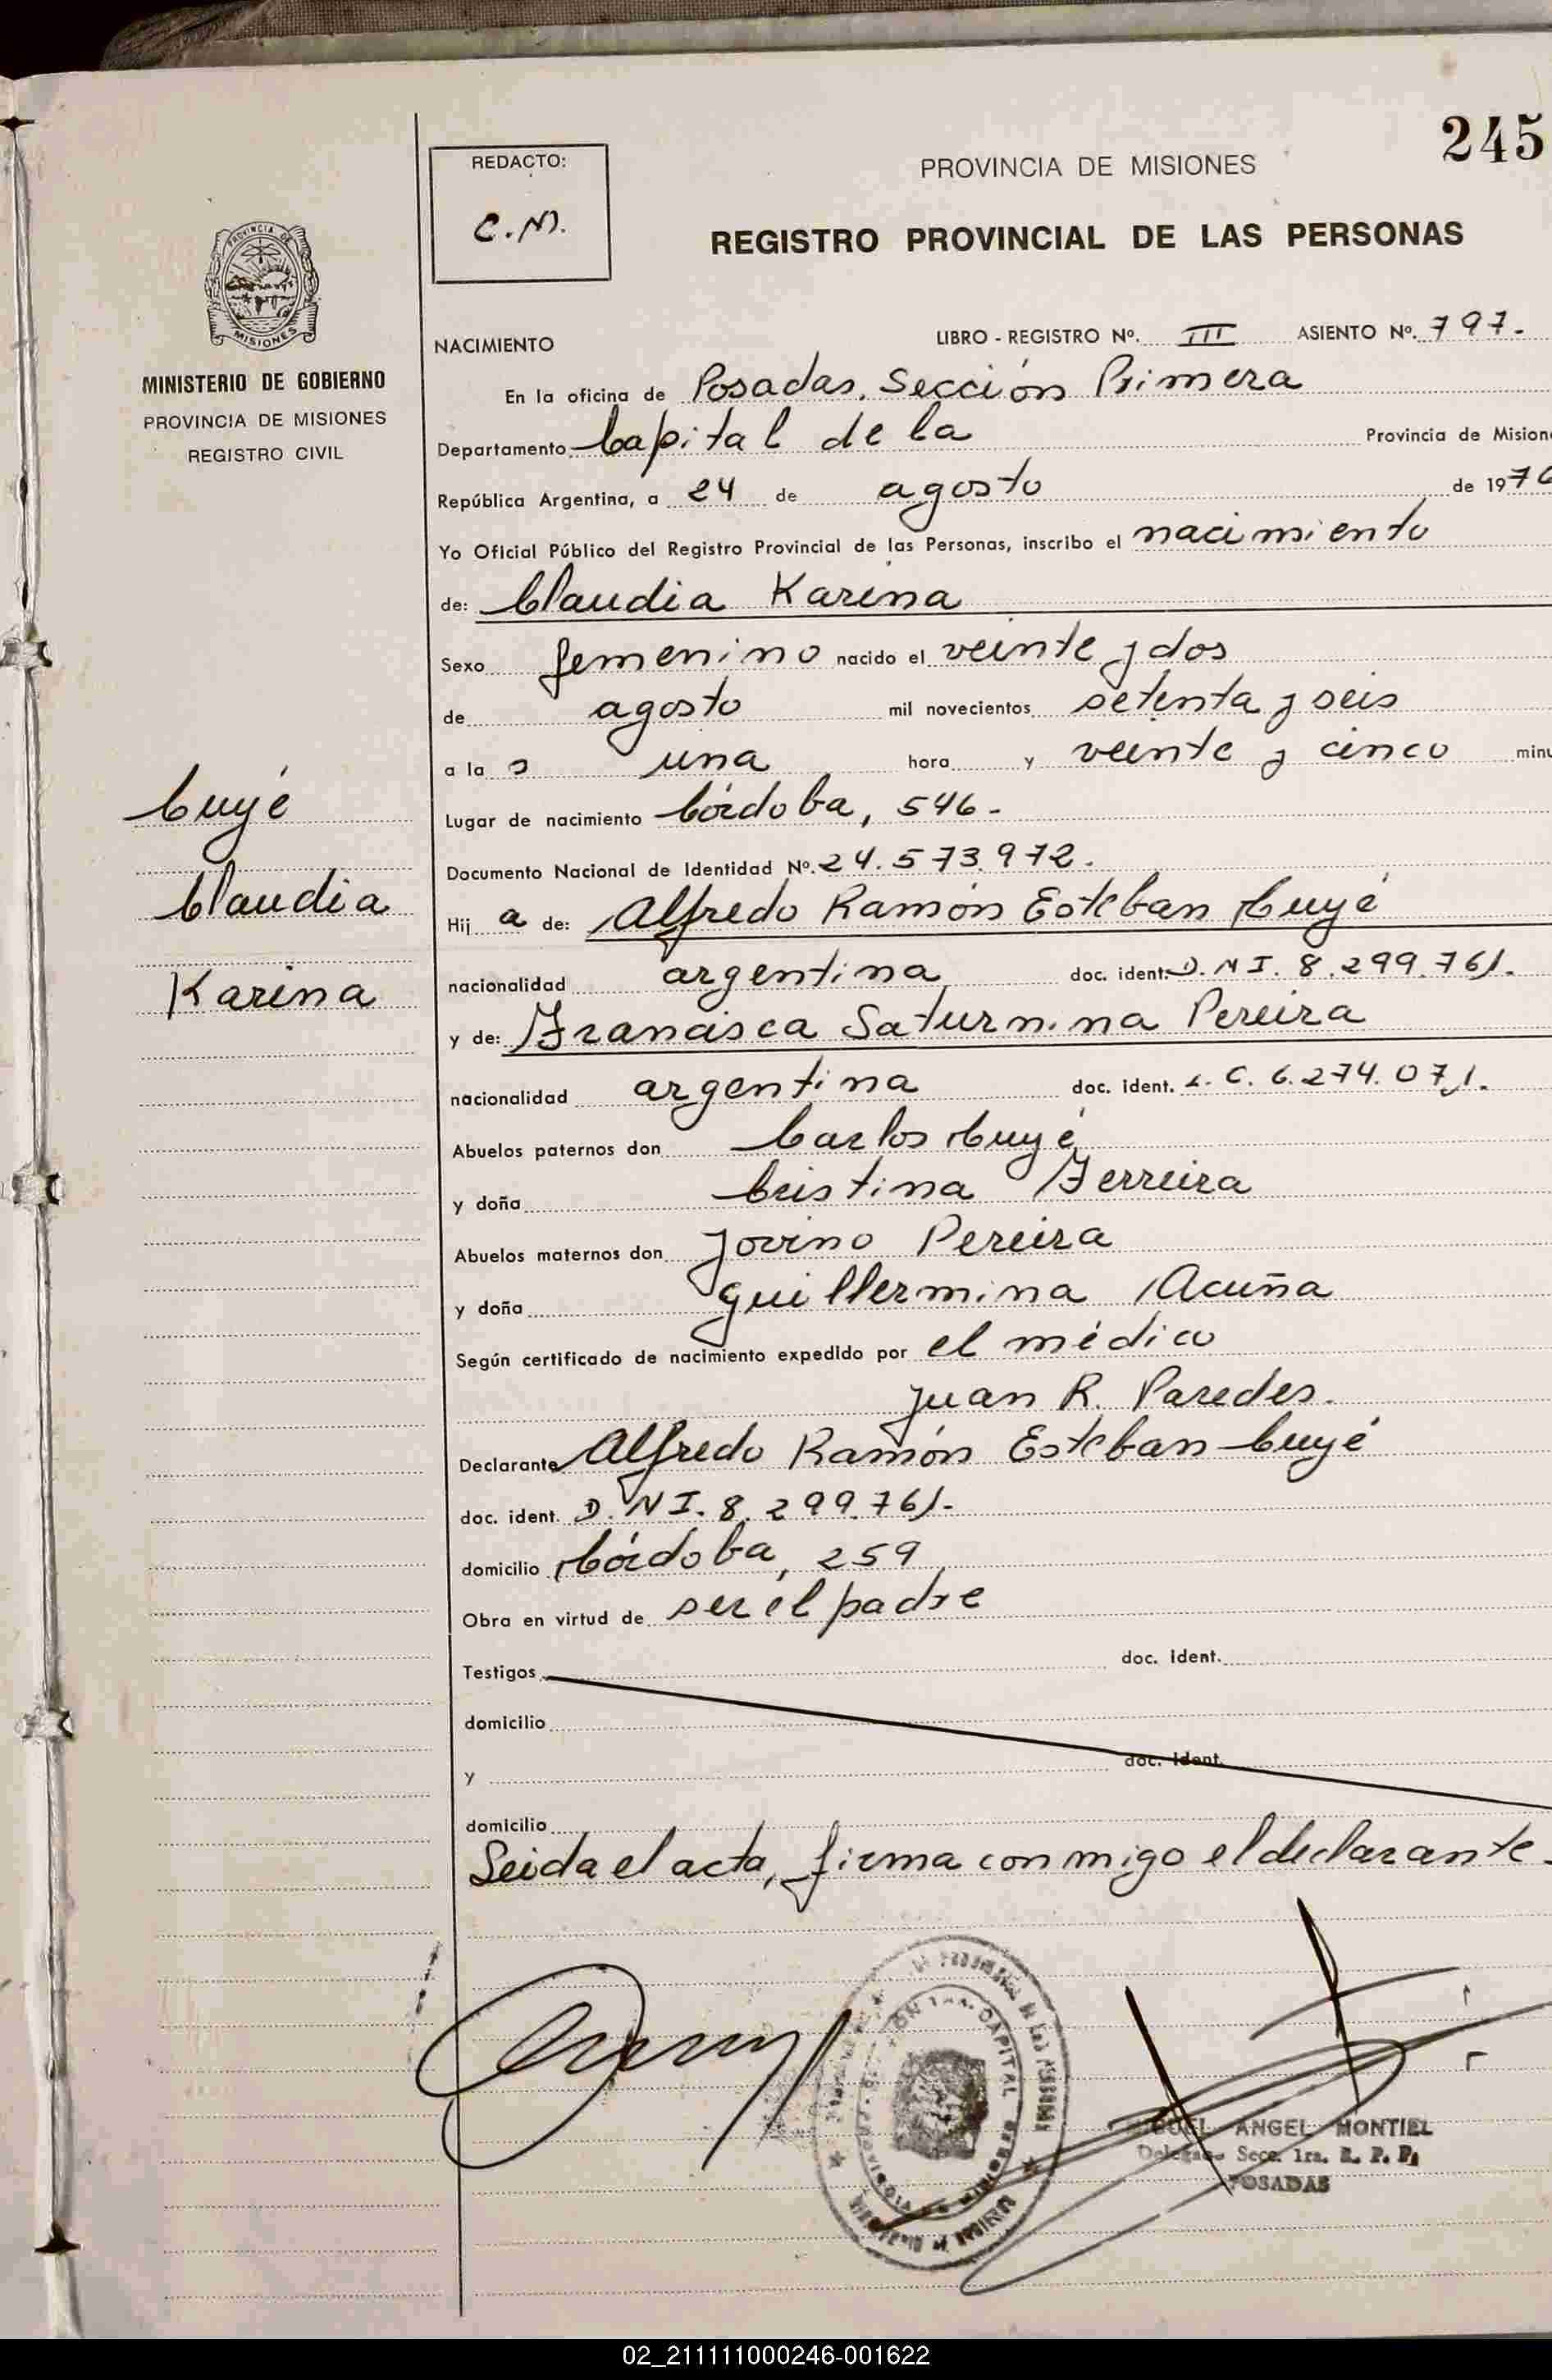 245
REDACTO:
C.M.
PROVINCIA DE MISIONES
REGISTRO PROVINCIAL DE LAS PERSONAS
MINISTERIO DE GOBIERNO
PROVINCIA DE MISIONES
REGISTRO CIVIL
NACIMIENTO
LIBRO - REGISTRO Nº. III ASIENTO Nº. 797.-
En la oficina de Posadas. Sección Primera
Departamento Capital de la Provincia de Mision
República Argentina, a 24 de agosto de 197
Yo Oficial Público del Registro Provincial de las Personas, inscribo el nacimiento
de: Claudia Karina
Sexo femenino nacido el veinte y dos
de agosto mil novecientos setenta y seis
a la s una hora y veinte y cinco minu
Lugar de nacimiento Córdoba, 546-
Documento Nacional de Identidad Nº. 24.573.972.
Hij a de: Alfredo Ramón Esteban Cuyé
nacionalidad argentina doc. ident. D.N I. 8.299.761.
y de: Francisca Saturnina Pereira
nacionalidad argentina doc. ident. L. C. 6.274.071.
Abuelos paternos don Carlos Cuyé
y doña Cristina Ferreira
Abuelos maternos don Jovino Pereira
y doña Guillermina Acuña
Según certificado de nacimiento expedido por el médico
Juan R. Paredes.
Declarante Alfredo Ramón Esteban Cuyé
doc. ident. D. N I. 8.299.761-
domicilio Córdoba, 259
Obra en virtud de ser el padre
Testigos doc. ident.
domicilio
y doc. ident.
domicilio
Leida el acta, firma conmigo el declarante.
Cuyé
Claudia
Karina
CAPITAL
MIGUEL ANGEL MONTIEL
Delegado Secc. 1ra. R. P. P.
POSADAS
02_211111000246-001622